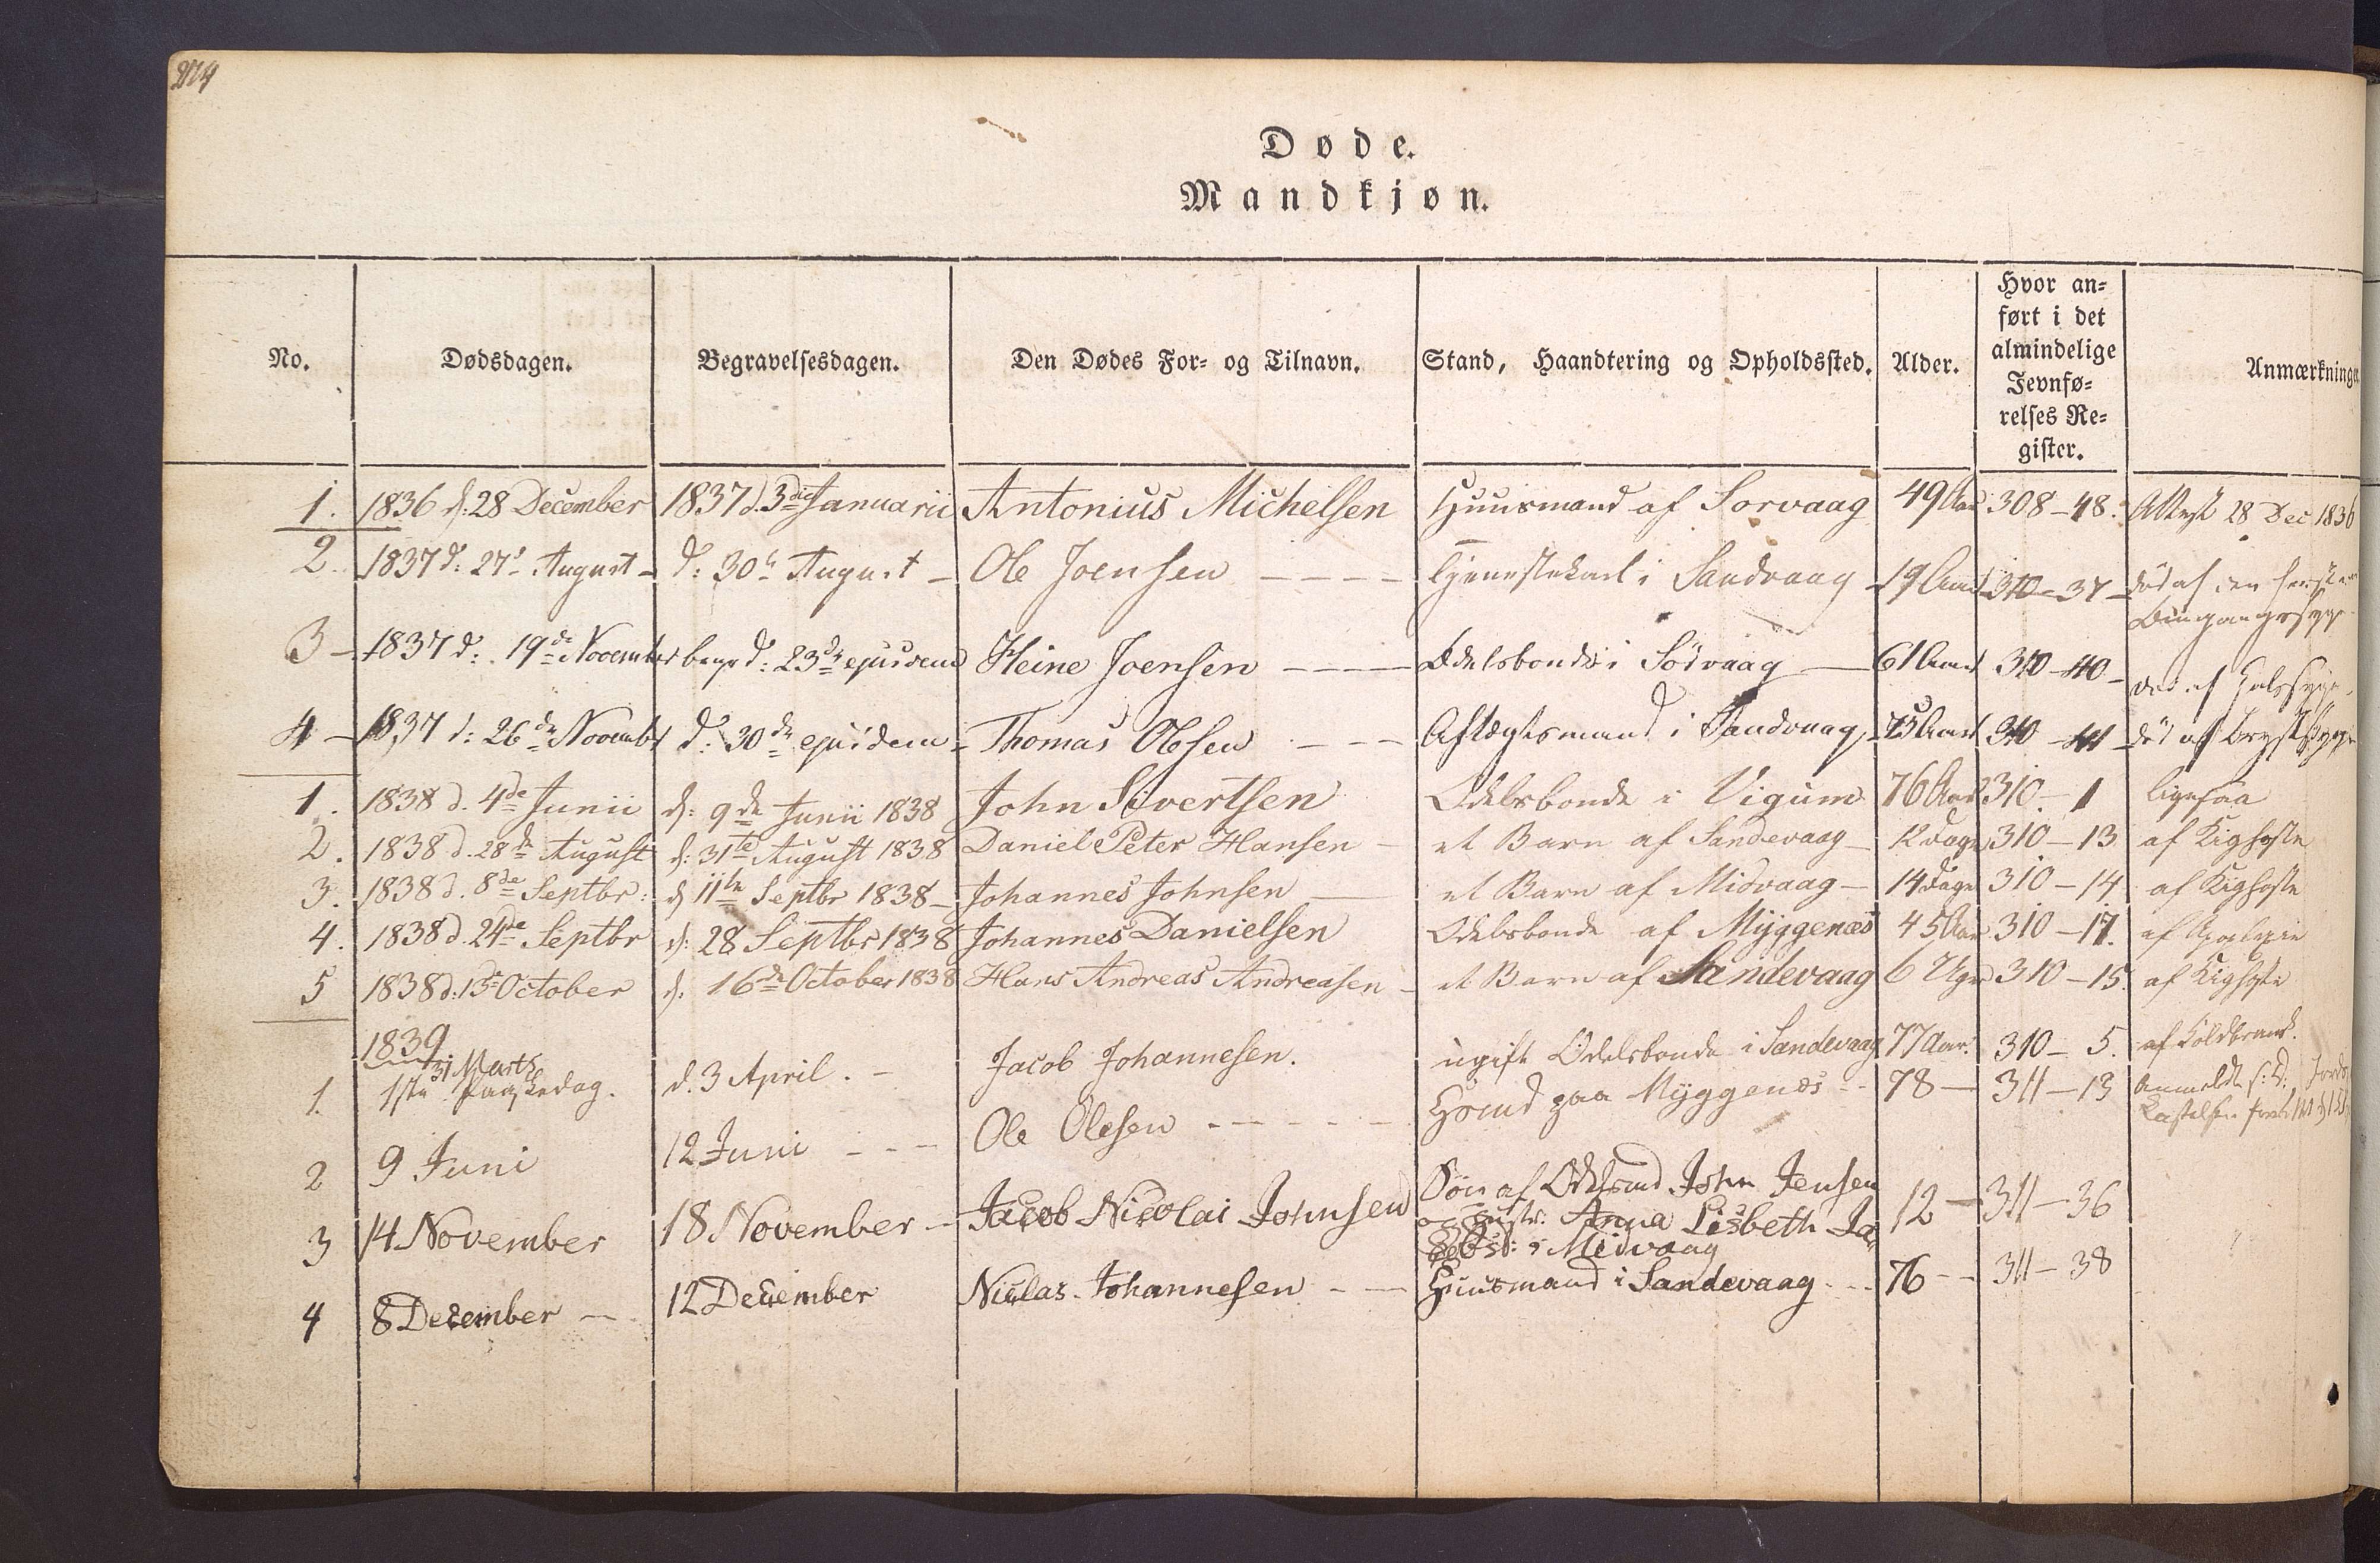 Døde.
Mandkjøn.
No. Dødsdagen. Begravelsesdagen. Den Dødes For- og Tilnavn. Stand, Haandtering og Opholdssted. Alder. Hvor an-
ført i det
almindelige
Jevnfø-
relses Re-
gister. Anmærkninge
1. 1836 d: 28 December 1837 d. 3die Januarii Antonius Michelsen Huusmand af Sorvaag 49 Aar 308-48. Attest 28 Dec 1836
2. 1837 d: 27de August - d: 30te August - Ole Joensen ---- Tjenestekarl i Sandvaag - 19 Aar 310-37- død af den
3 - 1837 d: 19de November begr d: 23de ejusdem Heine Joensen ---- Odelsbonde i Södvaag - 61 Aar 310-40- død af Halssyge
4 - 1837 d: 26de Novembr d: 30de ejusdem - Thomas Olesen --- Aftægtsmand i Sandvaag, 310-41- død af Brystsyge
1. 1838 d. 4de Junii d: 9de Junii 1838 John Sivertsen Odelsbonde i Vigum 76 Aar 310.-1 ligesaa
2. 1838 d. 28de August d: 31te August 1838 Daniel Peter Hansen - et Barn af Sandevaag - 12 Dage 310-13 af Kighoste
3. 1838 d. 8de Septbr: d 11te Septbr 1838 - Johannes Johnsen - et Barn af Midvaag - 14 Dage 310-14 af Kighoste
4. 1838 d. 24de Septbr d: 28 Septbr 1838 Johannes Danielsen Odelsbonde af Myggenæs 45 Aar 310-17. af Apoplexie
5 1838 d: 13de October d: 16de October 1838 Hans Andreas Andreasen - et Barn af Sandevaag 6 Uger 310-15. af Kighoste
1839
31 Marts
1. 1ste Paaskedag. d. 3 April. - Jacob Johannesen. ugift Odelsbonde i Sandevaag 77 Aar. 310-5. af Koldbrand.
2 9 Juni 12 Juni --- Ole Olesen ----- paa Myggenæs -- 78 - 311-13 Anmeldt
3 14 November 18 November - Jacob Nicolai Johnsen Søn af Odelsmd John Jensen
og Hustr: Anna Lisbeth Ja-
i Midvaag 12 - 311-36
4 8 December - 12 December Niclas Johannesen -- Huusmand i Sandevaag -- 76 -- 311-38